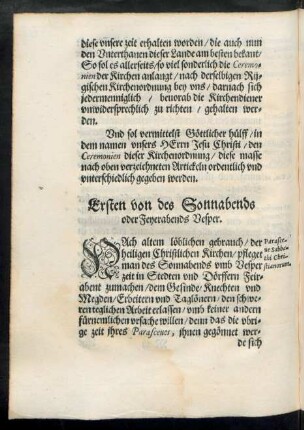 diese vnsere zeit erhalten worden / die auch nun
den Vnterthanen dieser Lande am besten bekant /
So sol es allerseits / so viel sonderlich die Ceremo-
nien der Kirchen anlangt / nach derselbigen Rü-
gischen Kirchenordnung bey vns / darnach sich
jedermenniglich / beuorab die Kirchendiener
vnwidersprechlich zu richten / gehalten wer-
den.
Vnd sol vermittelst Göttlicher hülff / in
dem namen vnsers HErrn Jesu Christi / den
Ceremonien dieser Kirchenordnung / diese masse
nach oben verzeichneten Artickeln ordentlich vnd
vnterschiedlich gegeben werden.
Ersten von des Sonnabends
oder Feyerabends Vesper.
NAch altem löblichen gebrauch / der
heiligen Christlichen Kirchen / pfleget
man des Sonnabends vmb Vesper
zeit in Stedten und Dörffern Feir-
abent zumachen / dem Gesinde / Knechten vnd
Megden / Erbeitern vnd Taglönern / den schwe-
ren teglichen Arbeit erlassen / vmb keiner andern
fürnemlichen vrsache willen / denn das die vbri-
ge zeit ihres Parasceues, ihnen gegönnet wer-
de sich
Parasce-
ue Sabba-
thi Chri-
stianorum.